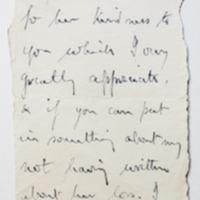 for her kindness to
you which I very
greatly appreciate.
& if you can put
in something about my
not having written
about her loss. I